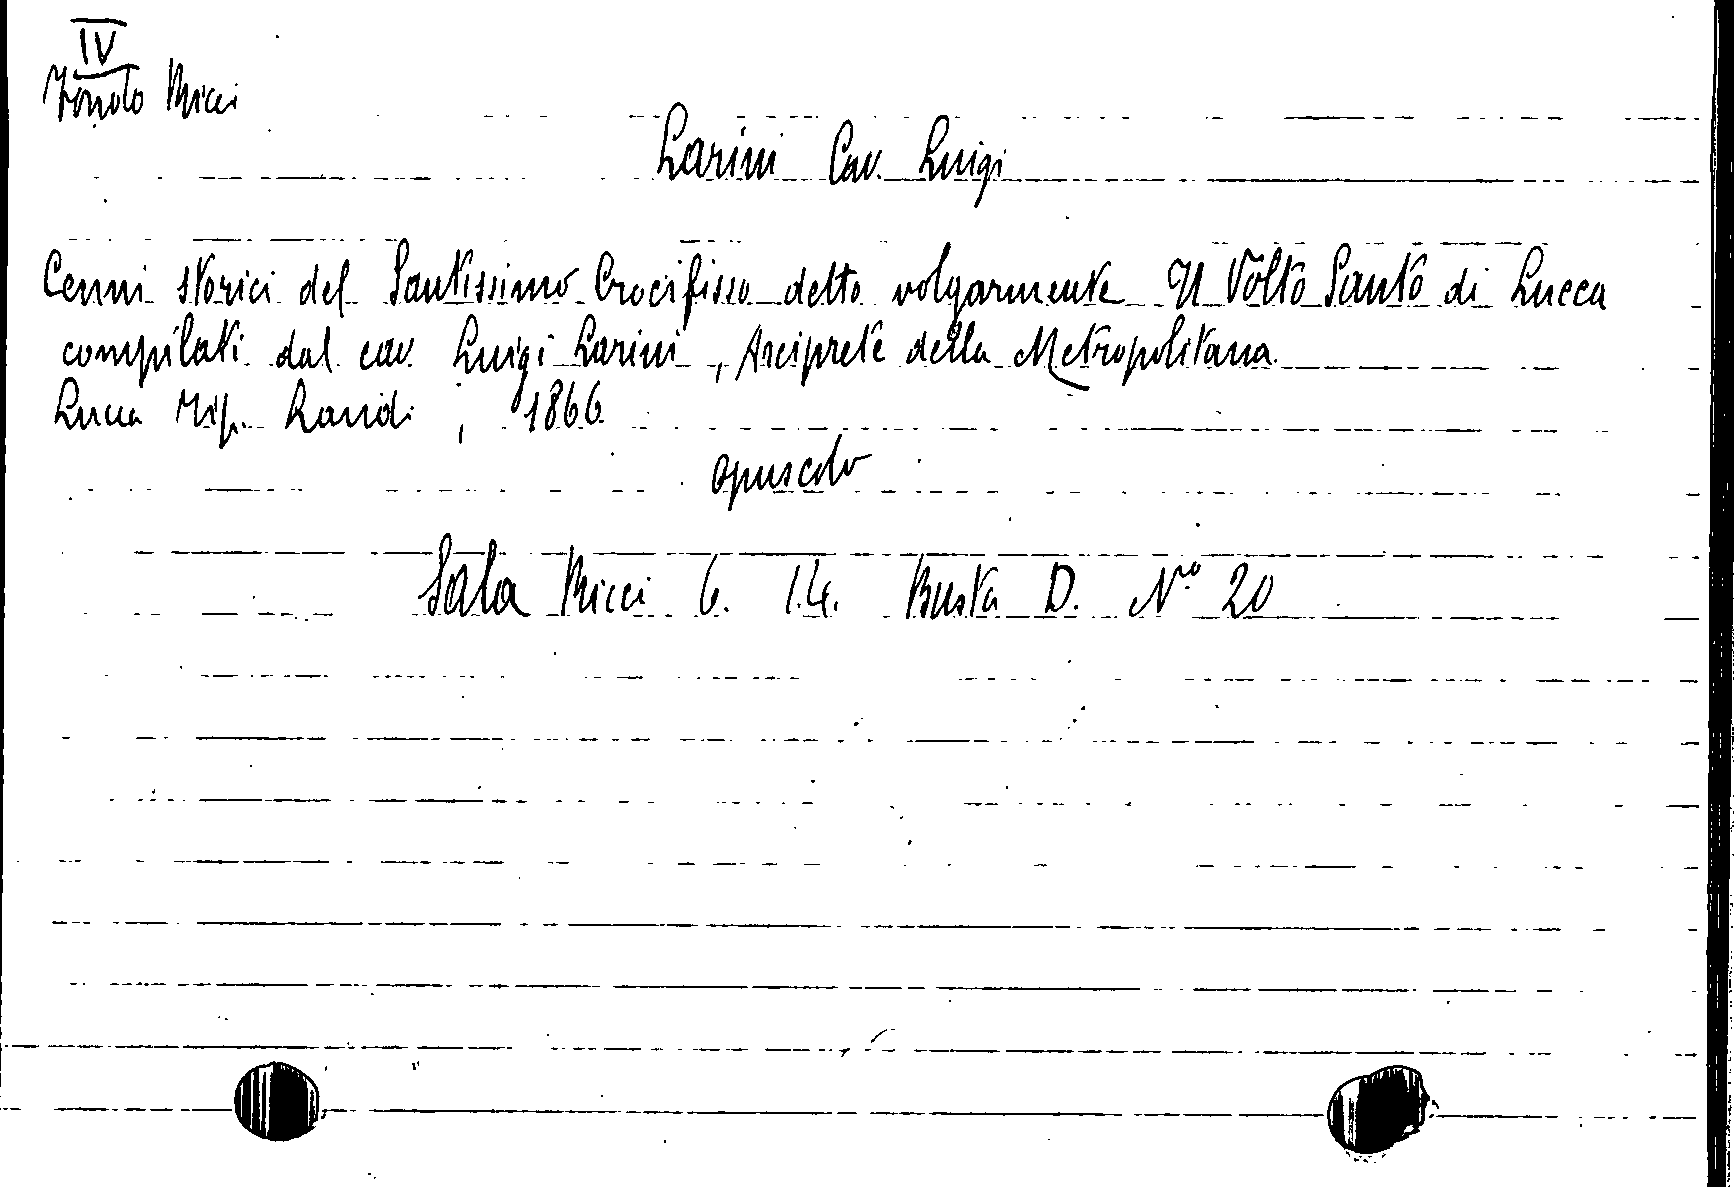 IV
Fondo Ricci
Larini Cav. Luigi
Cenni storici del Santissimo Crocifisso detto volgarmente Il Volto Santo di Lucca
compilati dal cav. Luigi Larini, Arciprete della Metropolitana.
Lucca Tip. Landi, 1866
opuscolo
Sala Ricci 6. 14. Busta D. N.o 20